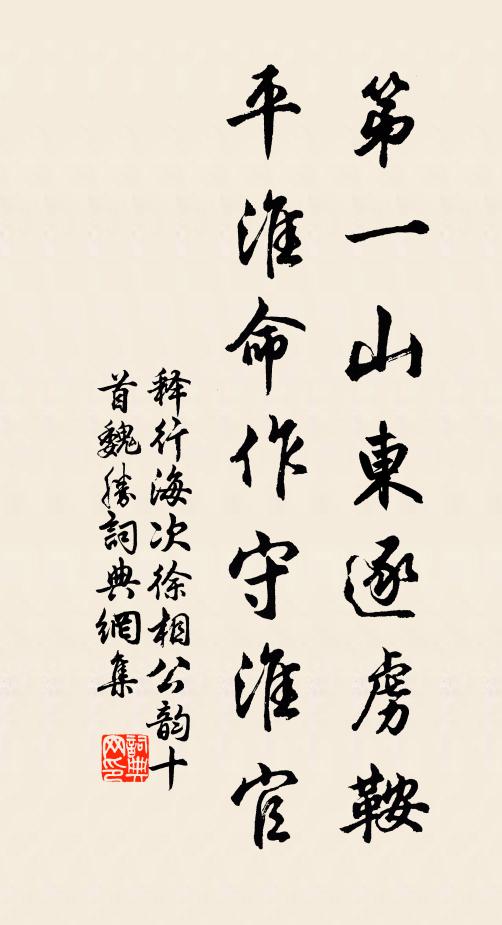 第一山東逐虜鞍
平淮命作守淮官
释行海次徐相公韵十
首魏勝詞典網集
詞典网印